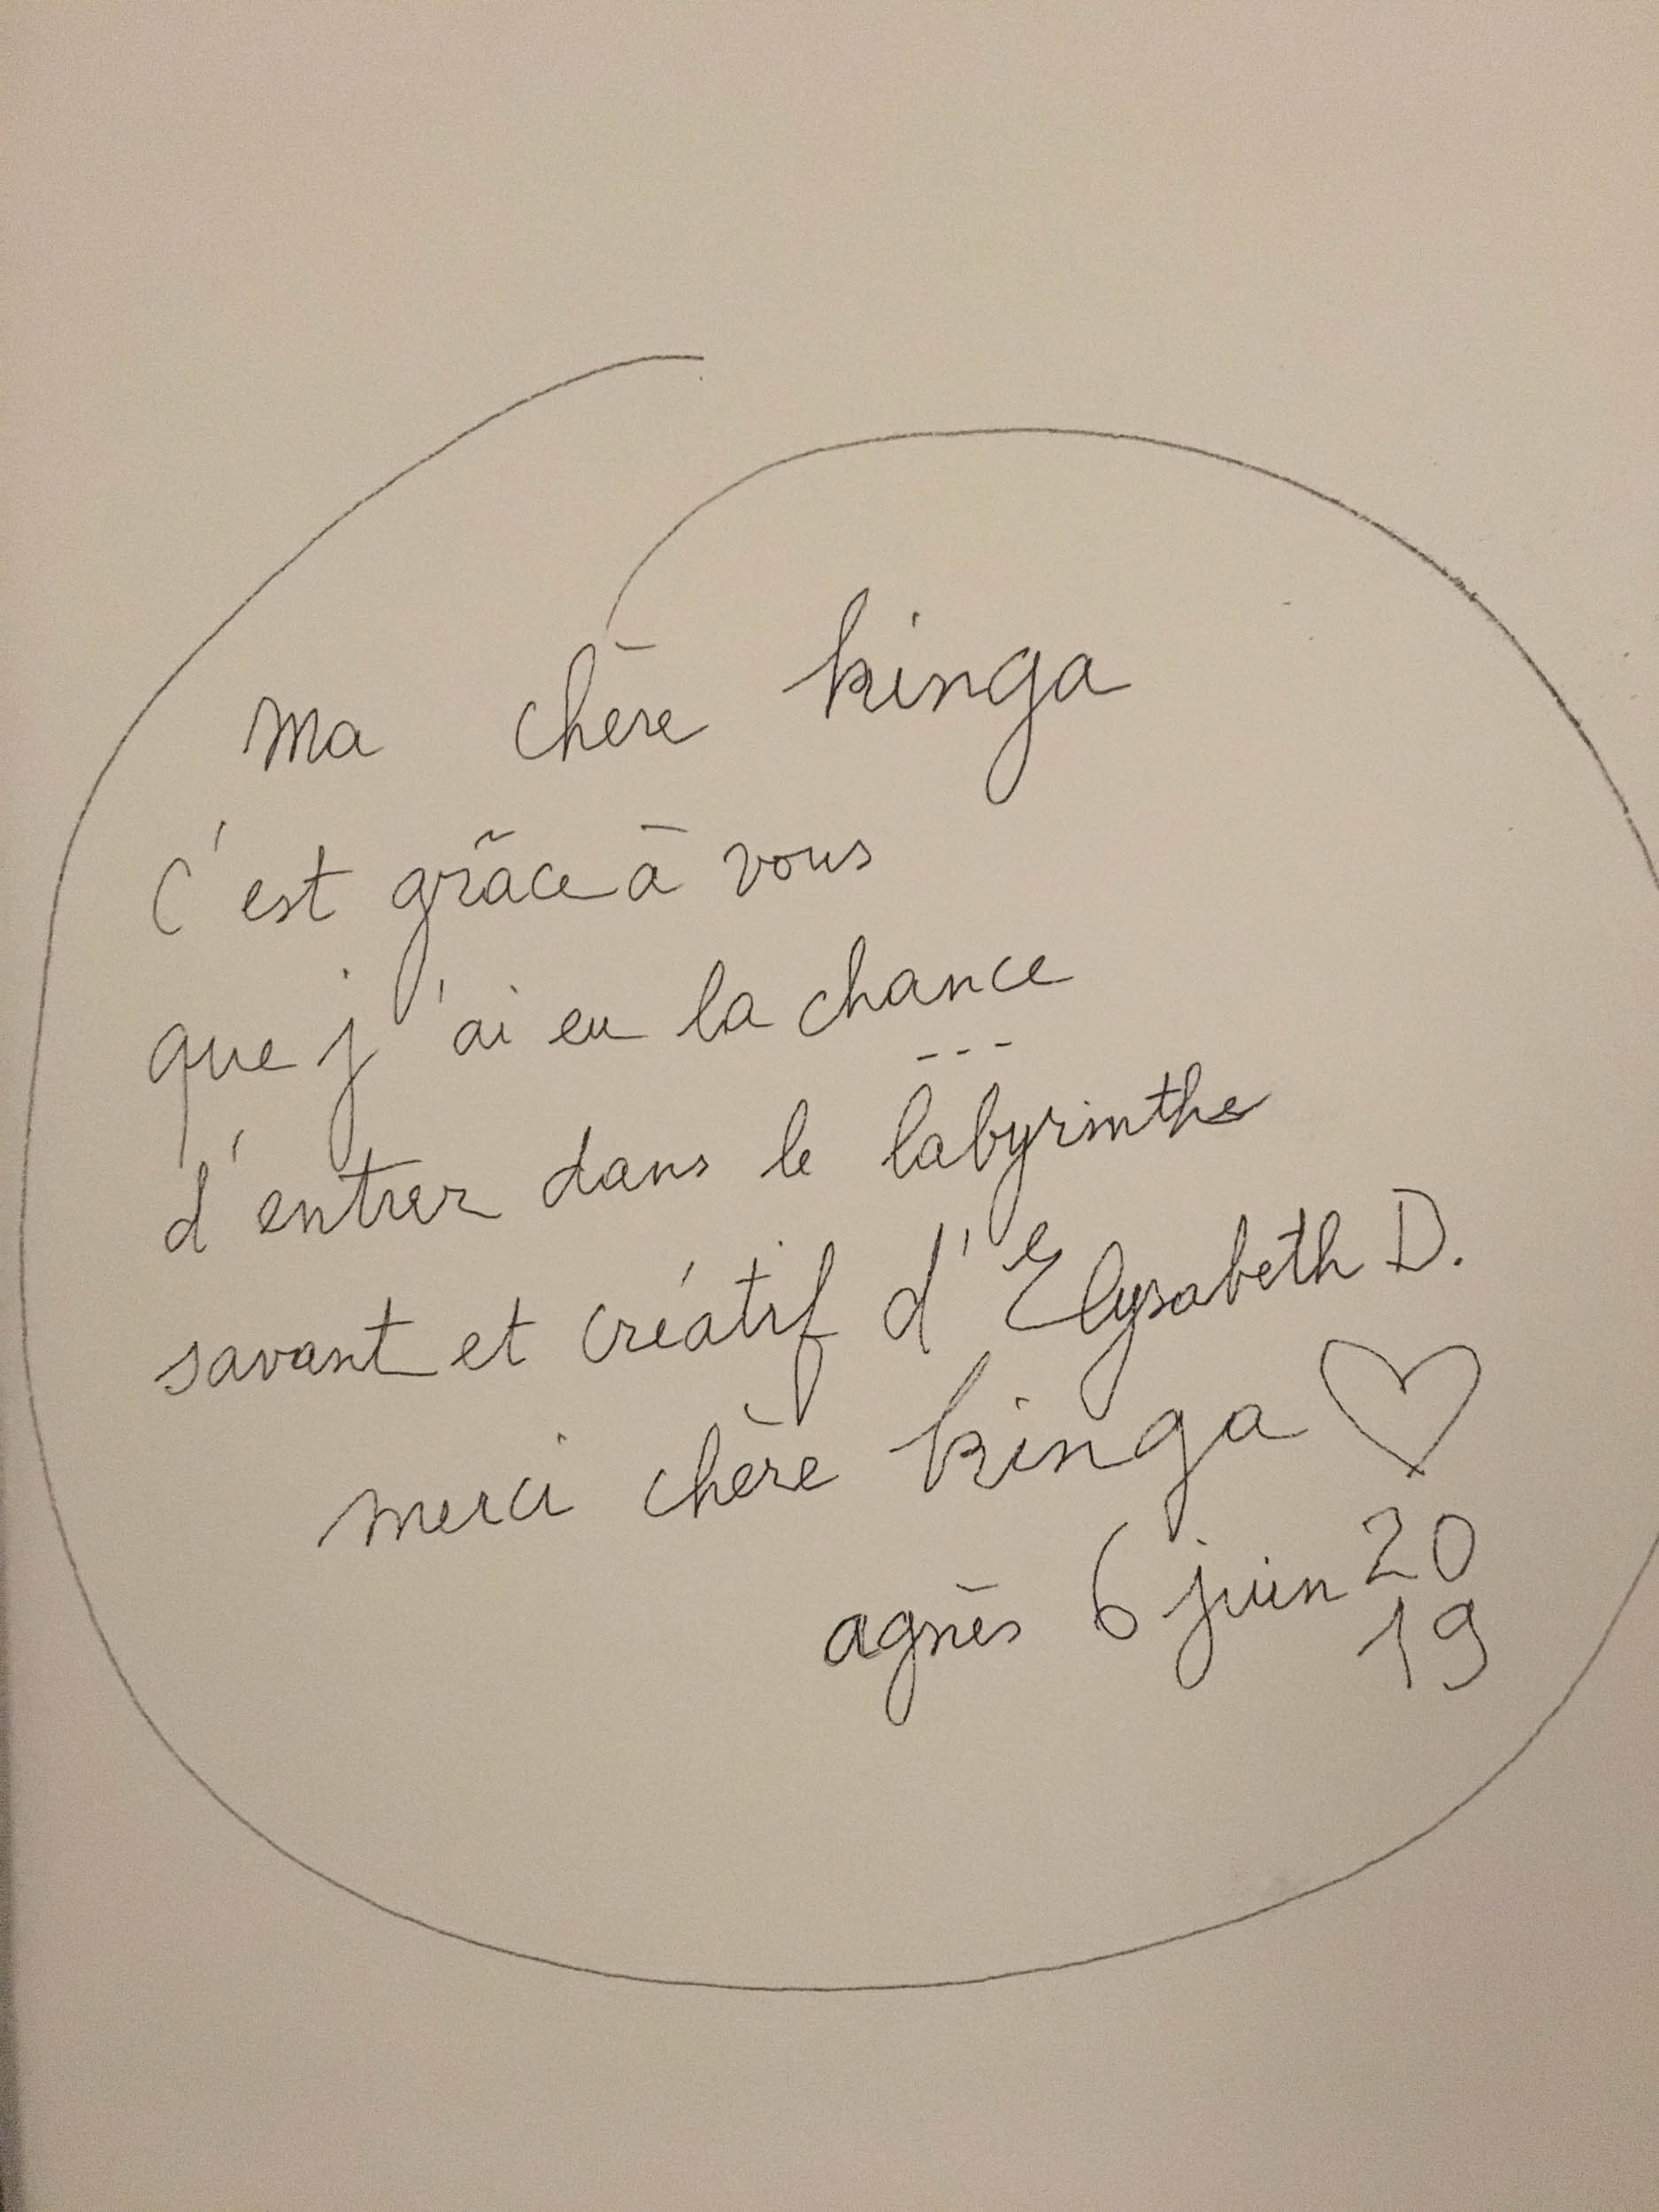 Ma chère kinga
C'est grâce à vous
que j'ai eu la chance
---
d'entrer dans le labyrinthe
savant et créatif d'Elysabeth D.
merci chère kinga ♡
agnès 6 juin 20
19